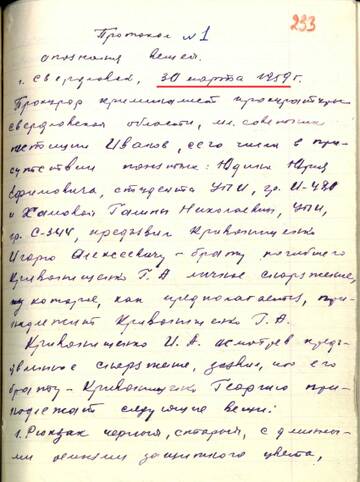 233
Протокол №1
опознания вещей.
г. Свердловск, 30 марта 1959 г.
Прокурор криминалист прокуратуры
Свердловской области, мл. советник
юстиции Иванов, сего числа в при-
сутствии понятых: Юдина Юрия
Ефимовича, студента УПИ, гр. И-480
и Хамовой Галины Николаевны, УПИ,
гр. С-344, предъявил Кривонищенко
Игорю Алексеевичу - брату погибшего
Кривонищенко Г.А личное снаряжение,
которые, как предполагается, при-
надлежит Кривонищенко Г.А.
Кривонищенко И.А. осмотрев предъ-
явленное снаряжение, заявил, что его
брату - Кривонищенко Георгию при-
надлежат следующие вещи:
1. Рюкзак черный, старый, с длинны-
ми ремнями защитного цвета,